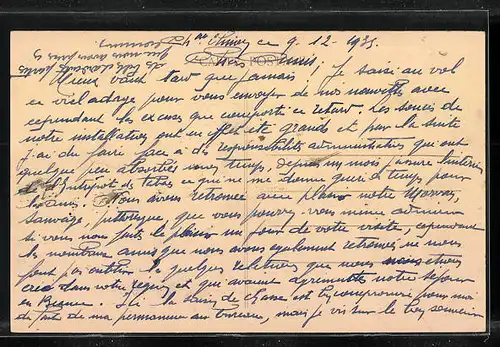 ce 9-12-1935
Chers Amis!
Mieux vaut tard que jamais! Je saisi au vol
ce vieil adage pour vous envoyer de nos nouvelles avec
cependant les excuses que comporte ce retard. Les soucis de
notre installation ont en effet été grands et par la suite
j'ai du faire face à des responsabilités administratives qui ont
quelque peu absorbées mon temps. Depuis un mois j'assure l'intérim
de l'Entrepôt de ce qui ne me donne guère de temps pour
les amis. Nous avons retrouvé avec plaisir notre Morvan,
sauvage, pittoresque, que vous pouvez vous même admirer
si vous nous faites le plaisir un jour de votre visite, cependant
les nombreux amis que nous avons également retrouvés ne nous
font pas oublier les quelques relations que nous nous étions
créé dans votre région et qui avaient agrémentées notre séjour
en Beauce. Ici la saison de chasse est bien compromise pour moi
du fait de ma permanence au bureau, mais je vis sur le bon souvenir